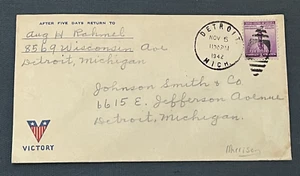 AFTER FIVE DAYS RETURN TO
Aug W Rahmel
8569 Wisconsin Ave
Detroit, Michigan
DETROIT
NOV 5
1942
MICH.
Johnson Smith & Co.
6615 E. Jefferson Avenue
Detroit, Michigan.
VICTORY